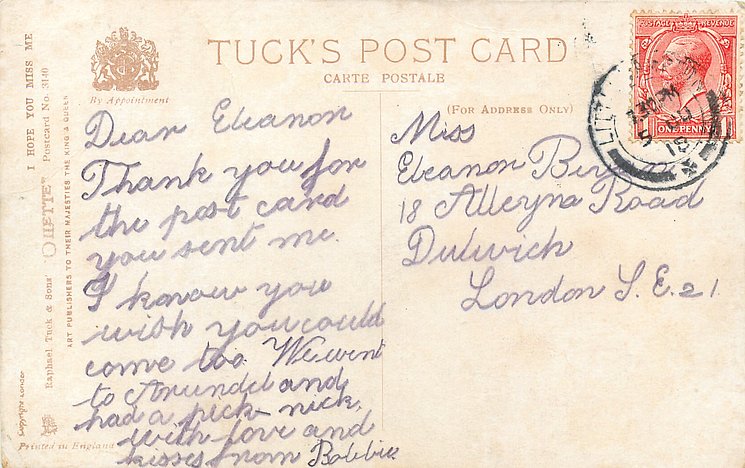 TUCK'S POST CARD
CARTE POSTALE
By Appointment
(FOR ADDRESS ONLY)
POSTAGE REVENUE
ONE PENNY
I HOPE YOU MISS ME
Raphael Tuck & Sons' "OILETTE" Postcard No. 3140
ART PUBLISHERS TO THEIR MAJESTIES THE KING & QUEEN
Copyright London
Printed in England
Dear Eleanor
Thank you for
the post card
you sent me.
I know you
wish you could
come too. We went
to Arundel and
had a pick-nick.
with love and
kisses from Bobbie
Miss
Eleanor
18 Alleyne Road
Dulwich
London S.E. 21.